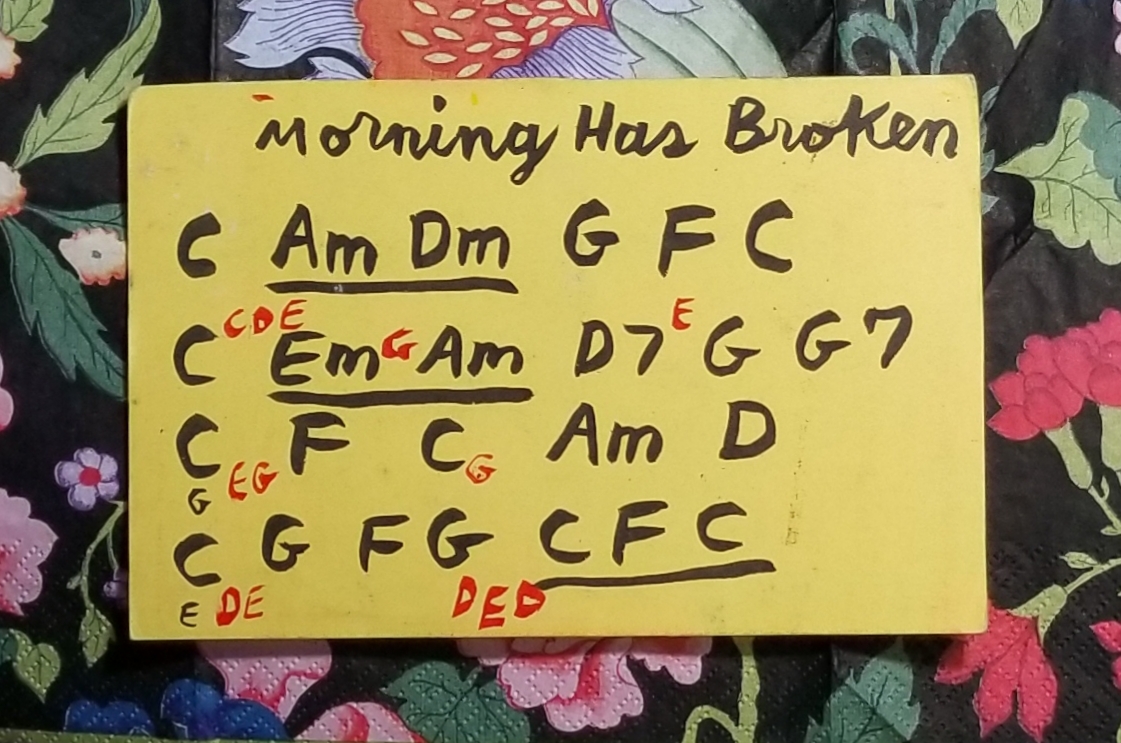 Morning Has Broken
C Am Dm G F C
CDE E
C Em G Am D7 G G7
C F C Am D
G EG G
C G F G C F C
E DE DED